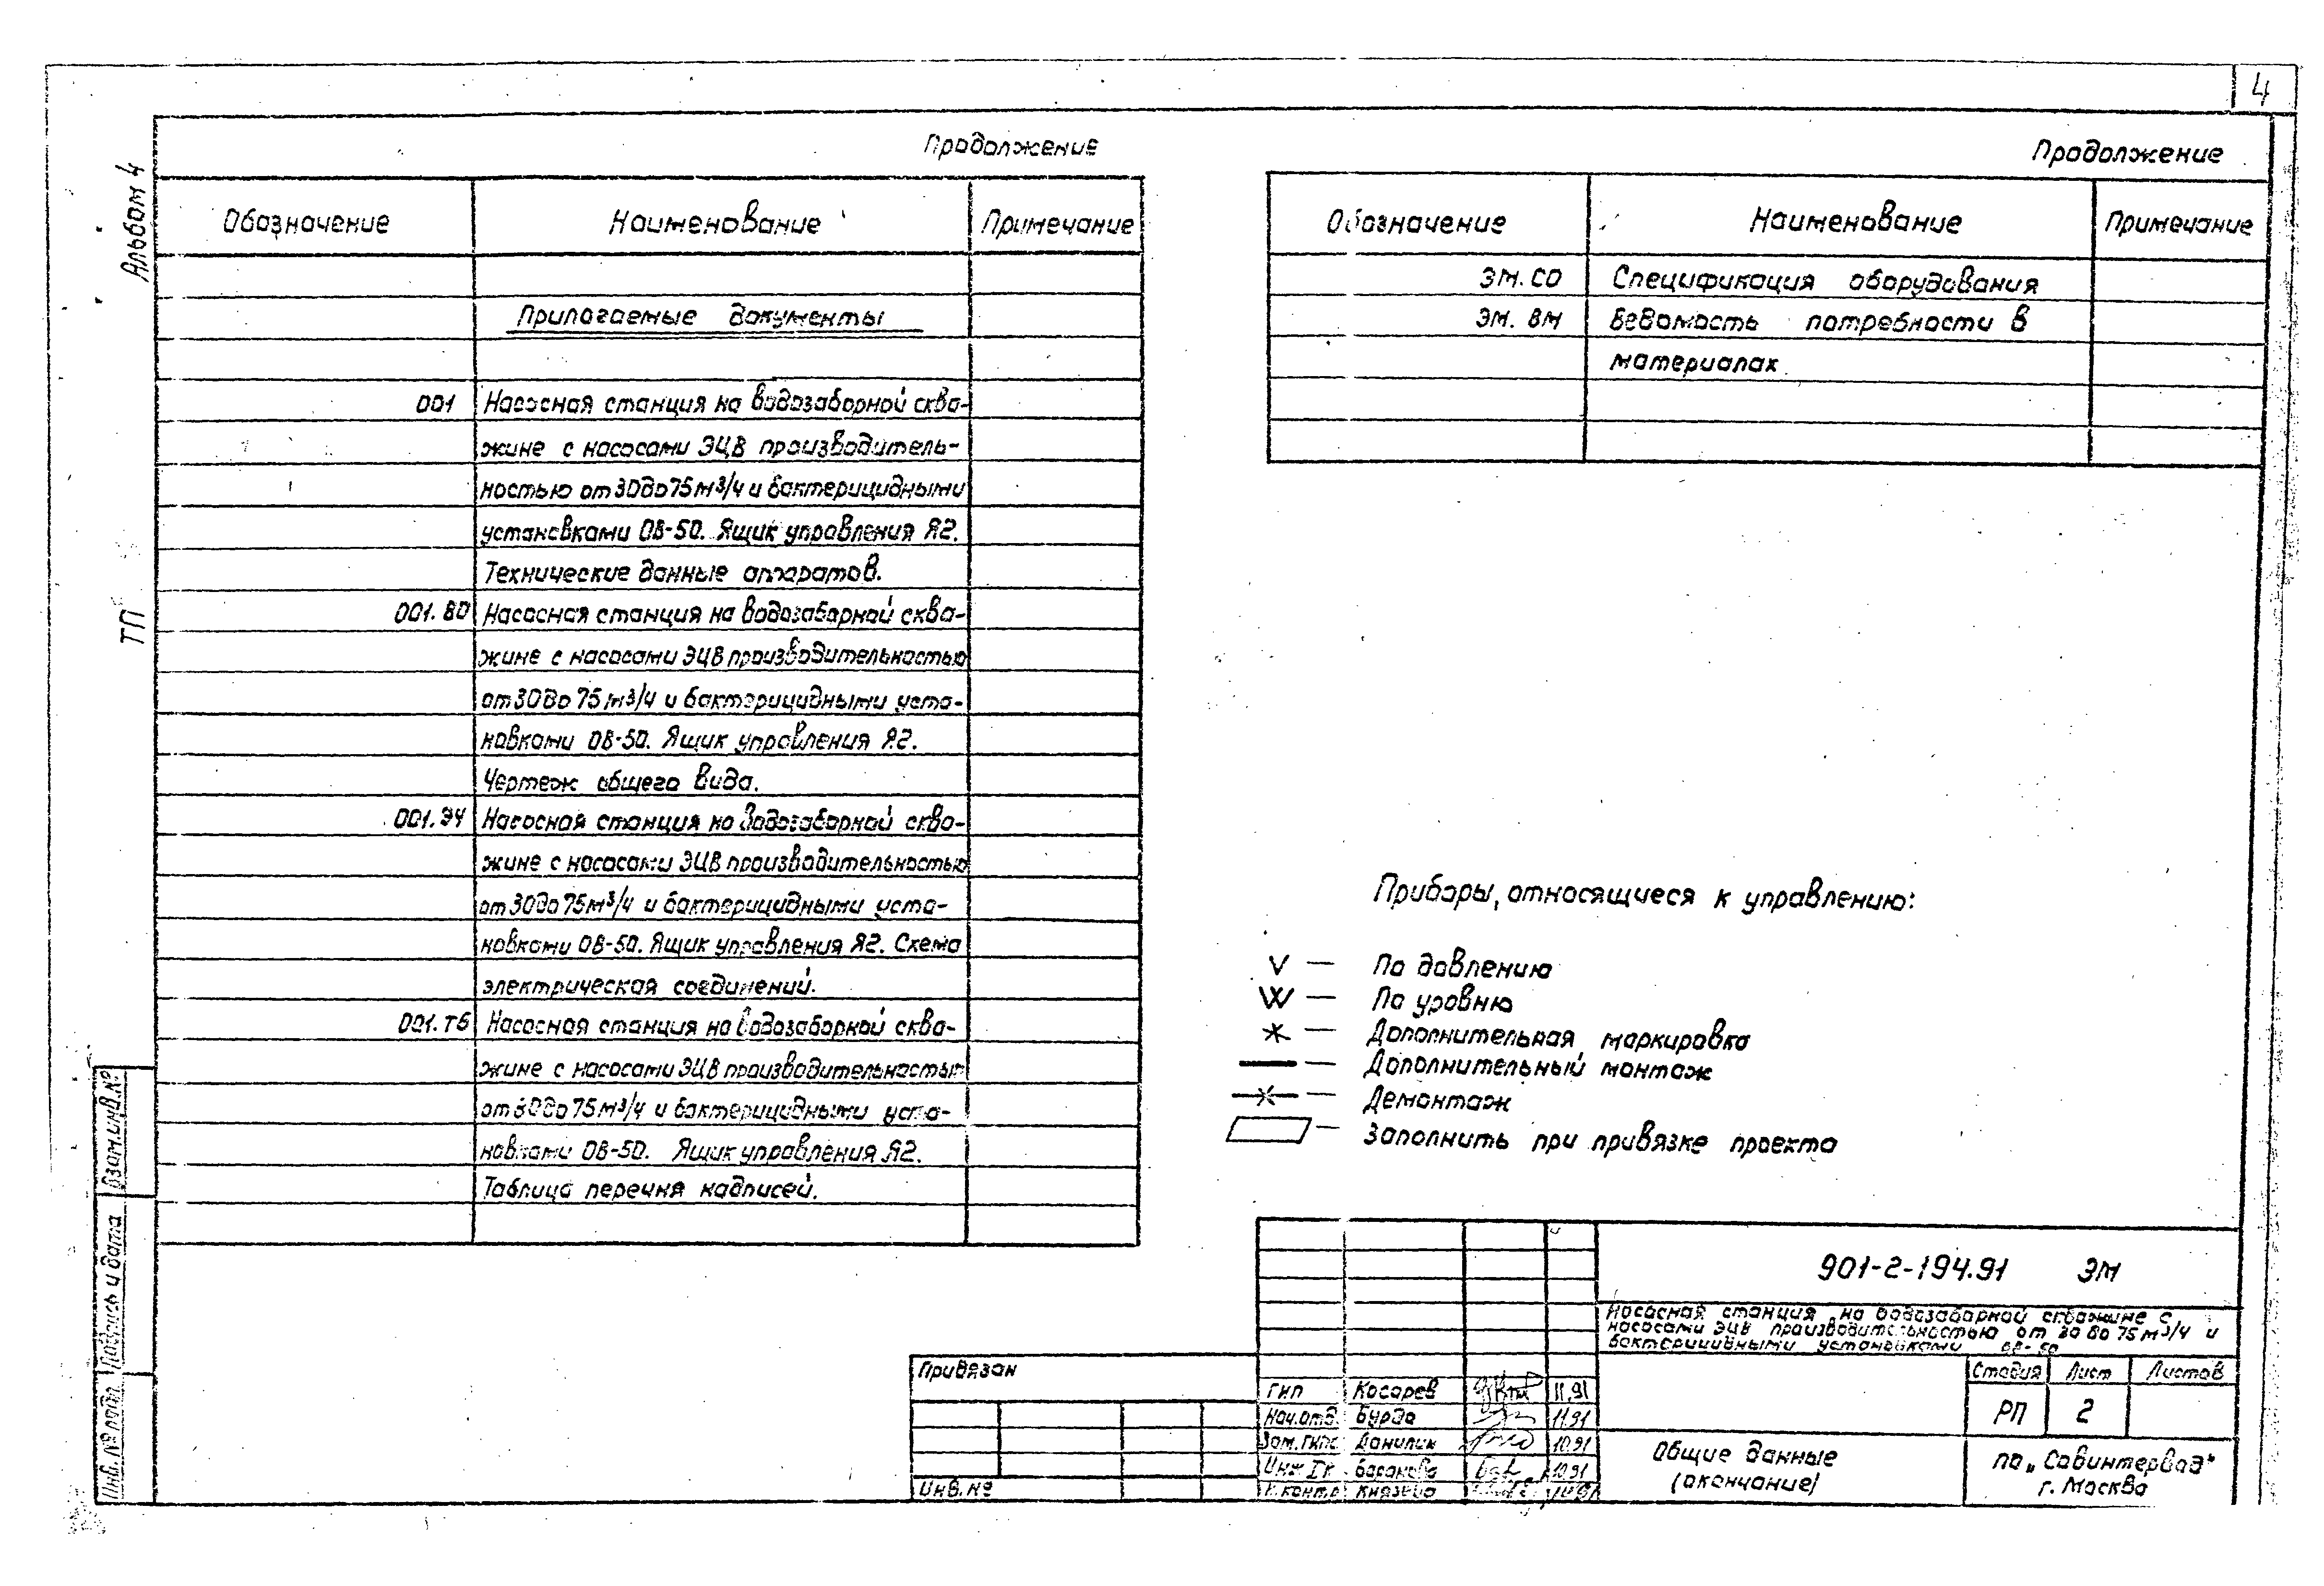 4
Альбом 4
ТП
Продолжение
Обозначение Наименование Примечание
Прилагаемые документы
001 Насосная станция на водозаборной сква-
жине с насосами ЭЦВ производитель-
ностью от 30 до 75 м³/ч и бактерицидными
установками ОВ-50. Ящик управления Я2.
Технические данные аппаратов.
001.ВО Насосная станция на водозаборной сква-
жине с насосами ЭЦВ производительностью
от 30 до 75 м³/ч и бактерицидными уста-
новками ОВ-50. Ящик управления Я2.
Чертеж общего вида.
001.Э4 Насосная станция на водозаборной сква-
жине с насосами ЭЦВ производительностью
от 30 до 75 м³/ч и бактерицидными уста-
новками ОВ-50. Ящик управления Я2. Схема
электрическая соединений.
001.ТБ Насосная станция на водозаборной сква-
жине с насосами ЭЦВ производительностью
от 30 до 75 м³/ч и бактерицидными уста-
новками ОВ-50. Ящик управления Я2.
Таблица перечня надписей.
Продолжение
Обозначение Наименование Примечание
ЭМ.СО Спецификация оборудования
ЭМ.ВМ Ведомость потребности в
материалах
Приборы, относящиеся к управлению:
V — По давлению
W — По уровню
* — Дополнительная маркировка
— Дополнительный монтаж
— Демонтаж
— Заполнить при привязке проекта
901-2-194.91 ЭМ
Насосная станция на водозаборной скважине с
насосами ЭЦВ производительностью от 30 до 75 м³/ч и
бактерицидными установками ОВ-50
Стадия Лист Листов
РП 2
Общие данные
(окончание)
ПО „Совинтервод"
г. Москва
Привязан
Инв. №
ГИП Косарев 11.91
Нач. отд. Бурда 11.91
Зам. ГИПа Данилин 10.91
Инж. I к. Баранова 10.91
Н. контр. Князева
Взам. инв. №
Подпись и дата
Инв. № подл.